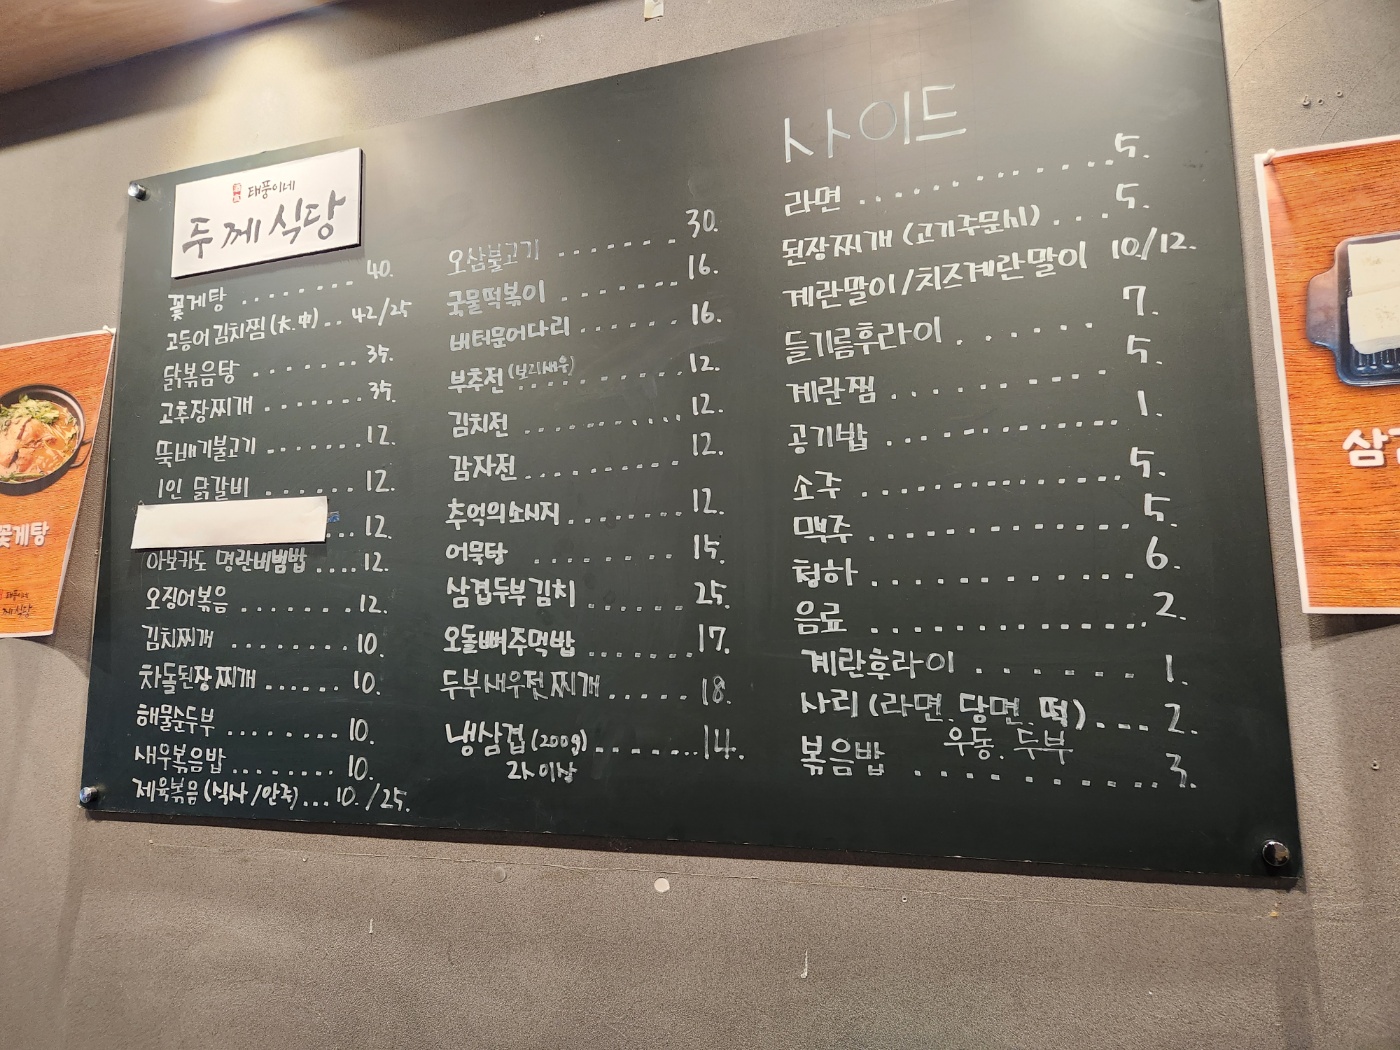 태풍이네
두께식당
꽃게탕 ........ 40.
고등어김치찜 (大.中) .. 42/25
닭볶음탕 ....... 35.
고추장찌개 ....... 35.
뚝배기불고기 ....... 12.
1인 닭갈비 ...... 12.
.. 12.
아보카도 명란비빔밥 .... 12.
오징어볶음 ........ 12.
김치찌개 ........ 10.
차돌된장찌개 ...... 10.
해물순두부 ........ 10.
새우볶음밥 ........ 10.
제육볶음 (식사/안주) ... 10./25.
오삼불고기 ....... 30.
국물떡볶이 ....... 16.
버터문어다리 ....... 16.
부추전 (보리새우) ......... 12.
김치전 ......... 12.
감자전 ......... 12.
추억의소시지 ....... 12.
어묵탕 ......... 15.
삼겹두부김치 ...... 25.
오돌뼈주먹밥 ....... 17.
두부새우젓찌개 ..... 18.
냉삼겹 (200g) ....... 14.
2人 이상
사이드
라면 ............ 5.
된장찌개 (고기주문시) .... 5.
계란말이/치즈계란말이 10/12.
들기름후라이 ...... 7.
계란찜 ......... 5.
공기밥 ............ 1.
소주 ............. 5.
맥주 ............. 5.
청하 ............. 6.
음료 ............. 2.
계란후라이 ....... 1.
사리 (라면. 당면. 떡) .... 2.
우동. 두부
볶음밥 ............ 3.
꽃게탕
태풍이네